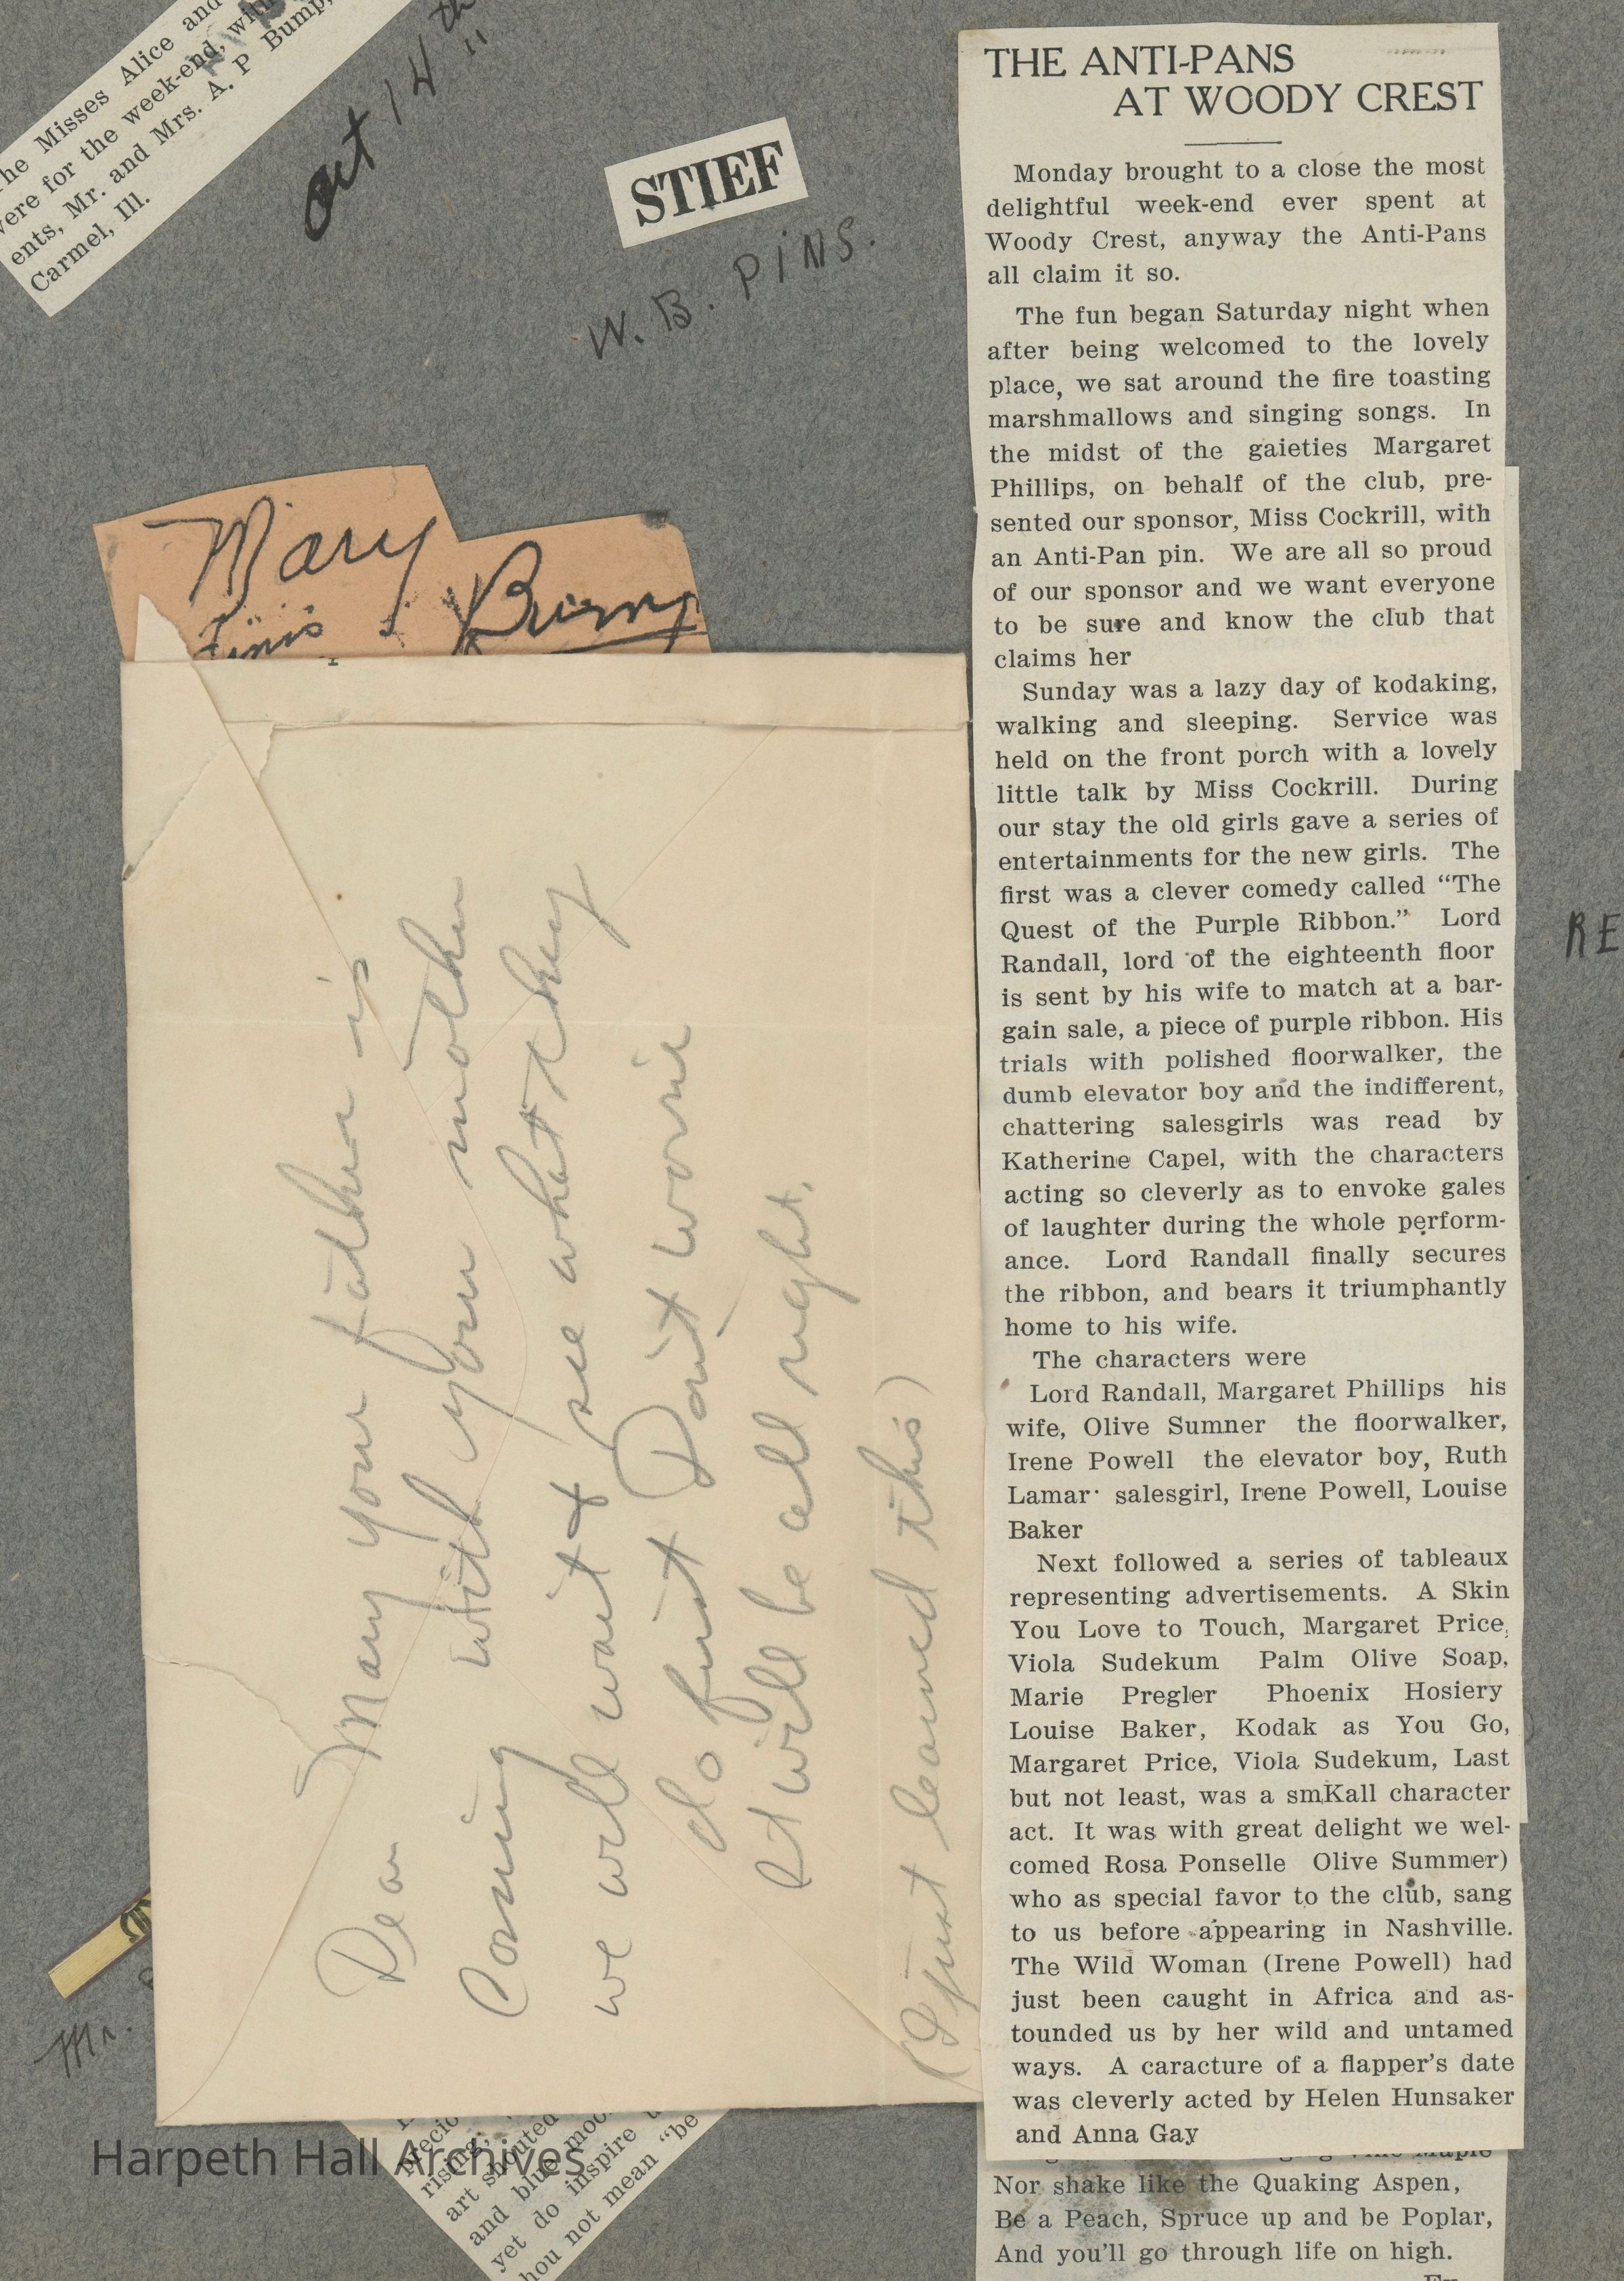 The Misses Alice and
were for the week-end, with
ents, Mr. and Mrs. A. P Bump,
Carmel, Ill.
Oct 14th
STIEF
W. B. PINS.
Mary
Bump
Dear Mary your father is
Coming with your mother
we will wait & see what they
do first Don't worrie
It will be all right.
(I just learned this)
Mr.
THE ANTI-PANS
AT WOODY CREST
Monday brought to a close the most
delightful week-end ever spent at
Woody Crest, anyway the Anti-Pans
all claim it so.
The fun began Saturday night when
after being welcomed to the lovely
place, we sat around the fire toasting
marshmallows and singing songs. In
the midst of the gaieties Margaret
Phillips, on behalf of the club, pre-
sented our sponsor, Miss Cockrill, with
an Anti-Pan pin. We are all so proud
of our sponsor and we want everyone
to be sure and know the club that
claims her
Sunday was a lazy day of kodaking,
walking and sleeping. Service was
held on the front porch with a lovely
little talk by Miss Cockrill. During
our stay the old girls gave a series of
entertainments for the new girls. The
first was a clever comedy called “The
Quest of the Purple Ribbon.” Lord
Randall, lord of the eighteenth floor
is sent by his wife to match at a bar-
gain sale, a piece of purple ribbon. His
trials with polished floorwalker, the
dumb elevator boy and the indifferent,
chattering salesgirls was read by
Katherine Capel, with the characters
acting so cleverly as to envoke gales
of laughter during the whole perform-
ance. Lord Randall finally secures
the ribbon, and bears it triumphantly
home to his wife.
The characters were
Lord Randall, Margaret Phillips his
wife, Olive Sumner the floorwalker,
Irene Powell the elevator boy, Ruth
Lamar salesgirl, Irene Powell, Louise
Baker
Next followed a series of tableaux
representing advertisements. A Skin
You Love to Touch, Margaret Price,
Viola Sudekum Palm Olive Soap,
Marie Pregler Phoenix Hosiery
Louise Baker, Kodak as You Go,
Margaret Price, Viola Sudekum, Last
but not least, was a smKall character
act. It was with great delight we wel-
comed Rosa Ponselle Olive Summer)
who as special favor to the club, sang
to us before appearing in Nashville.
The Wild Woman (Irene Powell) had
just been caught in Africa and as-
tounded us by her wild and untamed
ways. A caracture of a flapper's date
was cleverly acted by Helen Hunsaker
and Anna Gay
Nor shake like the Quaking Aspen,
Be a Peach, Spruce up and be Poplar,
And you'll go through life on high.
RE
rising;
art shouted
and blue moo
yet do inspire
hou not mean “be
Harpeth Hall Archives